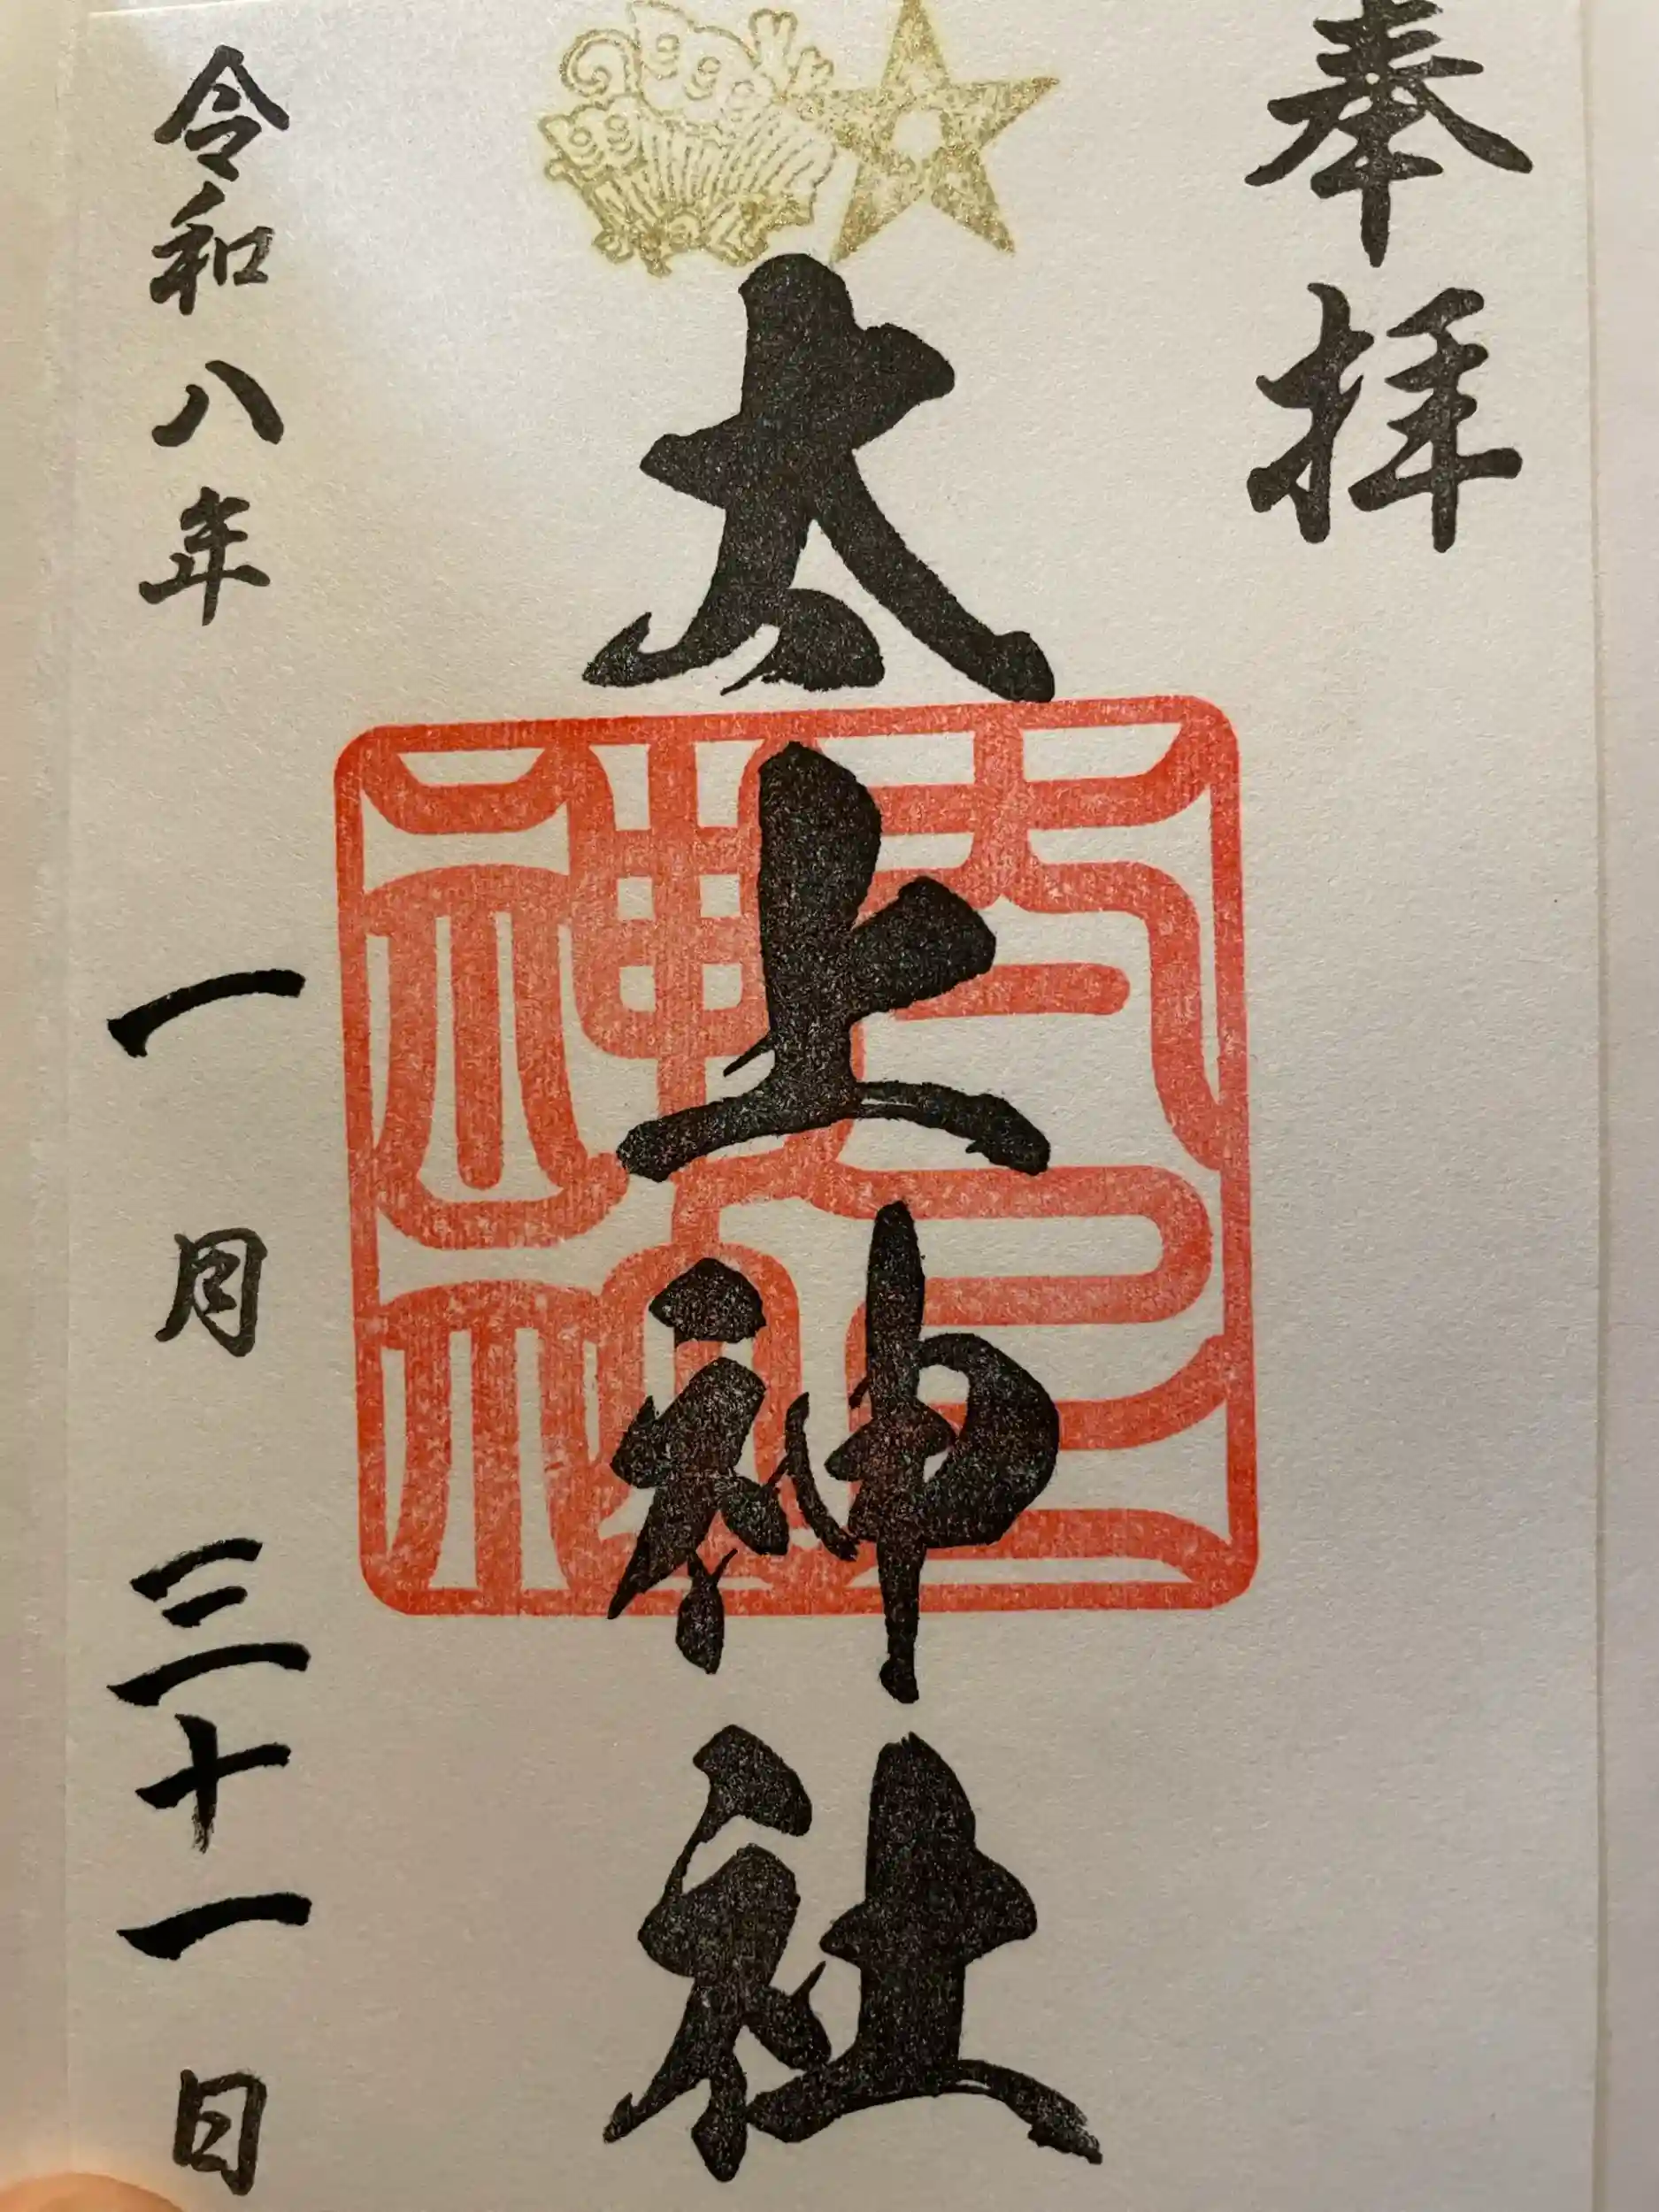 奉拝
太上神社
太上神社
令和八年 一月 三十一日